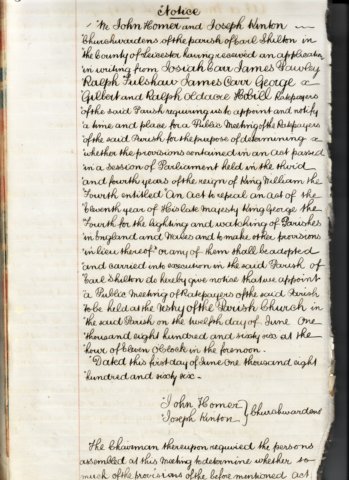 Notice
We John Homer and Joseph Kinton
Churchwardens of the parish of Earl Shilton in
the County of Leicester having received an application
in writing from Josiah Carr James Pawley
Ralph Fulshaw James Carr George
Gilbert and Ralph Oldacre Ratepayers
of the said Parish requiring us to appoint and notify
a time and place for a Public Meeting of the Ratepayers
of the said Parish for the purpose of determining
whether the provisions contained in an Act passed
in a session of Parliament held in the third
and fourth years of the reign of King William the
Fourth entitled "An Act to repeal an Act of the
Eleventh year of His late Majesty King George the
Fourth for the lighting and watching of Parishes
in England and Wales and to make other provisions
in lieu thereof" or any of them shall be adopted
and carried into execution in the said Parish of
Earl Shilton do hereby give notice that we appoint
a Public Meeting of Ratepayers of the said Parish
to be held at the Vestry of the Parish Church in
the said Parish on the twelfth day of June One
thousand eight hundred and sixty six at the
hour of Eleven O'Clock in the forenoon.
"Dated this first day of June One thousand eight
hundred and sixty six -
John Homer
Joseph Kinton } Churchwardens
The Chairman thereupon required the persons
assembled at this Meeting to determine whether so
much of the provisions of the before mentioned Act